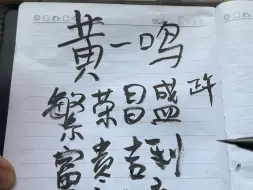 黄一鸣
繁荣昌盛
富贵吉利